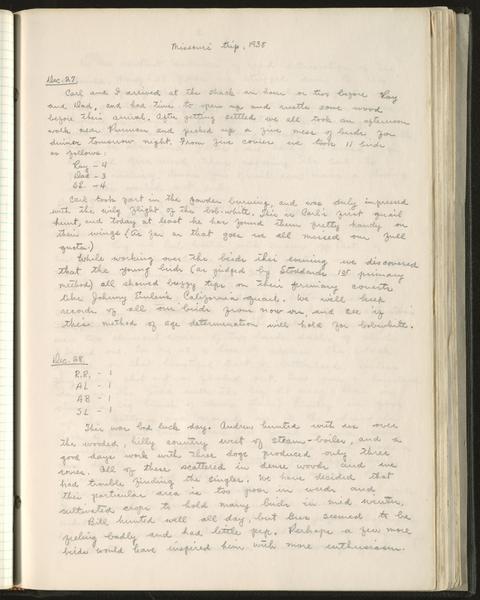 Missouri trip, 1938
Dec. 27.
Carl and I arrived at the shack an hour or two before Ray
and Dad, and had time to open up and rustle some wood
before their arrival. After getting settled we all took an afternoon
walk near Purman and picked up a fine mess of birds for
dinner tomorrow night. From five covies we took 11 birds
as follows:
Ray - 4
Dad - 3
SL - 4
Carl took part in the powder burning, and was duly impressed
with the wily flight of the bob-white. This is Carl's first quail
hunt, and today at least he has found them pretty handy on
their wings (As far as that goes we all missed our full
quota!)
While working over the birds this evening we discovered
that the young birds (as judged by Stoddards 1st primary
method) all showed buffy tips on their primary coverts
like Johnny California quail. We will keep
records of all our birds from now on, and see if
this method of age determination will hold for bobwhite.
Dec. 28
R.R. - 1
AL - 1
AB - 1
SL - 1
This was bad luck day. Andrew hunted with us over
the wooded, hilly country west of steam-boiler, and a
good days work with three dogs produced only three
covies. All of these scattered in dense woods and we
had trouble finding the singles. We have decided that
this particular area is too poor in weeds and
cultivated crops to hold many birds in mid winter.
Bill hunted well all day, but seemed to be
feeling badly and had little pep. Perhaps a few more
birds would have inspired him with more enthusiasm.